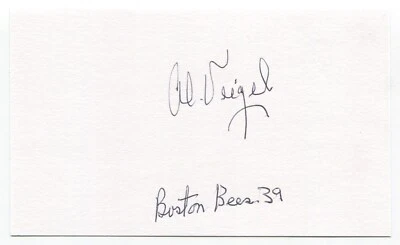 Al. Veigel
Boston Bees.39